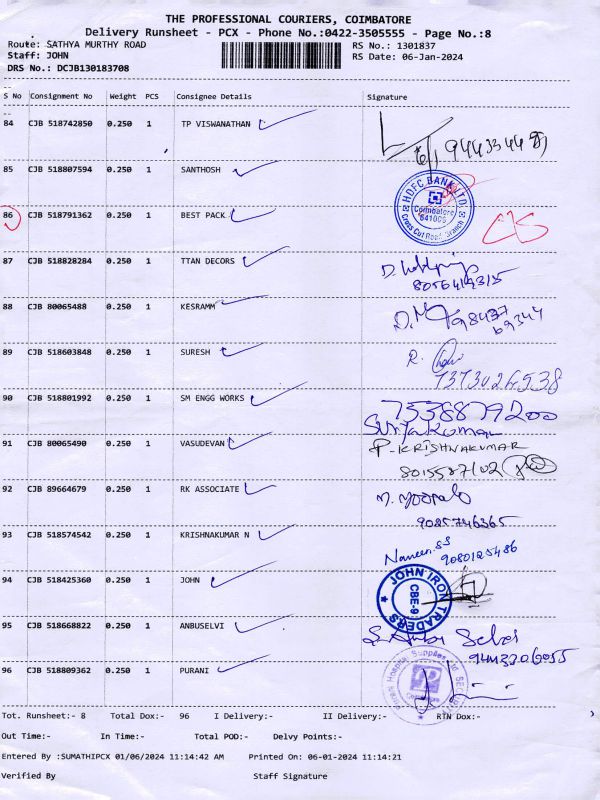 THE PROFESSIONAL COURIERS, COIMBATORE
Delivery Runsheet - PCX - Phone No.:0422-3505555 - Page No.:8
Route: SATHYA MURTHY ROAD
RS No.: 1301837
Staff: JOHN
RS Date: 06-Jan-2024
DRS No.: DCJB130183708
S No Consignment No Weight PCS Consignee Details Signature
84 CJB 518742850 0.250 1 TP VISWANATHAN
85 CJB 518807594 0.250 1 SANTHOSH
HDFC BANK LTD.
Coimbatore
641006
Cross Cut Road Branch
86 CJB 518791362 0.250 1 BEST PACK
87 CJB 518828284 0.250 1 TTAN DECORS
8056419315
88 CJB 80065488 0.250 1 KESRAMM
98437
69344
89 CJB 518603848 0.250 1 SURESH
7373024538
90 CJB 518801992 0.250 1 SM ENGG WORKS
7338879200
Suriyakumar
91 CJB 80065490 0.250 1 VASUDEVAN
P. KRISHNAKUMAR
8015587102
92 CJB 89664679 0.250 1 RK ASSOCIATE
9085746365
93 CJB 518574542 0.250 1 KRISHNAKUMAR N
Naveen.SS
9080125486
94 CJB 518425360 0.250 1 JOHN
JOHN IRON TRADERS
CBE-9
95 CJB 518668822 0.250 1 ANBUSELVI
96 CJB 518809362 0.250 1 PURANI
Tot. Runsheet:- 8 Total Dox:- 96 I Delivery:- II Delivery:- RTN Dox:-
Out Time:- In Time:- Total POD:- Delvy Points:-
Entered By :SUMATHIPCX 01/06/2024 11:14:42 AM Printed On: 06-01-2024 11:14:21
Verified By Staff Signature